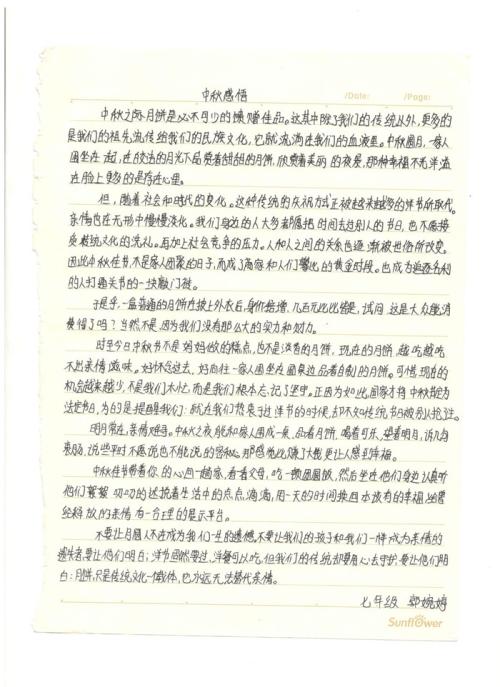 中秋感悟
/Date: /Page:
中秋之际月饼是必不可少的馈赠佳品。这其中除了我们的传统以外,更多的
是我们的祖先流传给我们的民族文化,它就流淌在我们的血液里。中秋圆月,一家人
团坐在一起,在皎洁的月光下品尝着甜甜的月饼,欣赏着美丽的夜景,那种幸福不光洋溢
在脸上更多的是存在心里。
但,随着社会和时代的变化。这种传统的庆祝方式正被越来越多的洋节所取代。
亲情也在无形中慢慢淡化。我们身边的人大多都愿把时间去过别人的节日,也不愿接
受传统文化的洗礼。再加上社会竞争的压力。人和人之间的关系也逐渐被世俗所改变。
因此中秋佳节不是家人团聚的日子,而成了商家和人们攀比的黄金时段。也成为追逐名利
的人打通关节的一块敲门砖。
于是乎,一盒普通的月饼在披上外衣后,身价倍增,几百元比比皆是,试问这是大众能消
费得了吗?当然不是因为我们没有那么大的实力和财力。
时至今日中秋节不是妈妈做的糕点,也不是淡香的月饼,现在的月饼,越吃越吃
不出亲情滋味。好怀念过去,好向往一家人围坐在圆桌边品着自制的月饼。可惜现在的
机会越来越少,不是我们太忙,而是我们根本忘记了坚守。正因为如此,国家才将中秋指定为
法定节日,为的是提醒我们:别在我们热衷于过洋节的时候,却不知传统节日被别人抢注。
明月常在,亲情难寻。中秋之夜能和家人围成一桌,品着月饼,喝着可乐,望着明月,诉几句
衷肠,说些平时不愿说也不能说的密秘。那感觉比赚了大钱更让人感到幸福。
中秋佳节带着你的心回一趟家,看看父母,吃一顿团圆饭,然后坐在他们身边认真听
他们絮絮叨叨的述说着生活中的点点滴滴,用一天的时间换回本该有的幸福,给
亲情有一个合理的展示平台。
不要让月圆人不在成为我们一生的遗憾,不要让我们的孩子和我们一样成为亲情的
迷失者,要让他们明白:洋节固然要过,洋餐可以吃,但我们的传统却要用心去守护,要让他们明
白:月饼,只是传统文化一个载体,它永远无法替代亲情。
七年级 郭婉婷
Sunflower